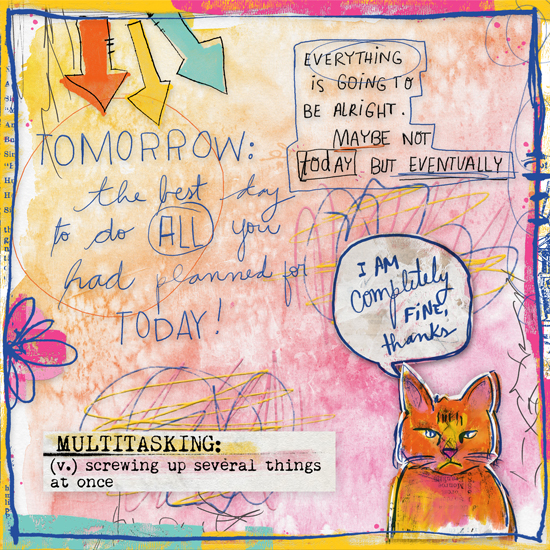 EVERYTHING
IS GOING TO
BE ALRIGHT.
MAYBE NOT
TODAY BUT EVENTUALLY
TOMORROW:
the best day
to do ALL you
had planned for
TODAY!
I AM
completely
FINE,
thanks
MULTITASKING:
(v.) screwing up several things
at once